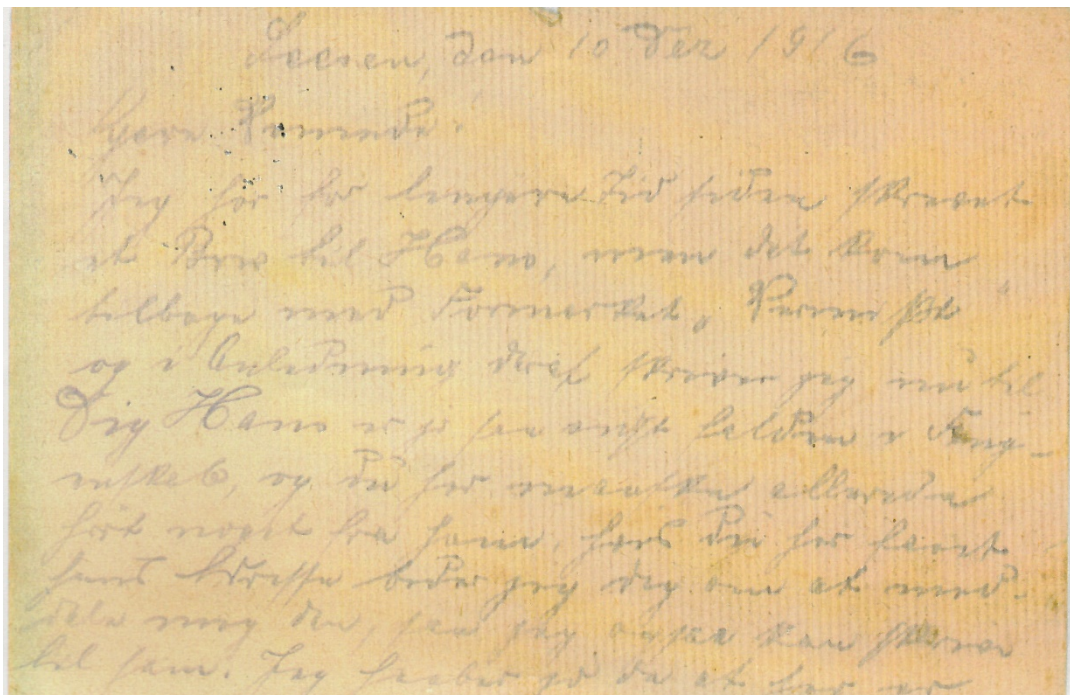 den 10 Dez 1916
Kære
Jeg har for længere Tid siden skrevet
et Brev til Hans, men det kom
tilbage med „Vermißt“
og i Anledning deraf skriver jeg nu til
Dig Hans er jo saa vidst falden i Fang-
enskab, og Du har maaske allerede
hört noget fra ham, hvis Du har faaet
hans Adresse beder jeg Dig om at med-
dele mig den, saa jeg ogsaa kan skrive
til ham. Jeg haaber jo da at han er